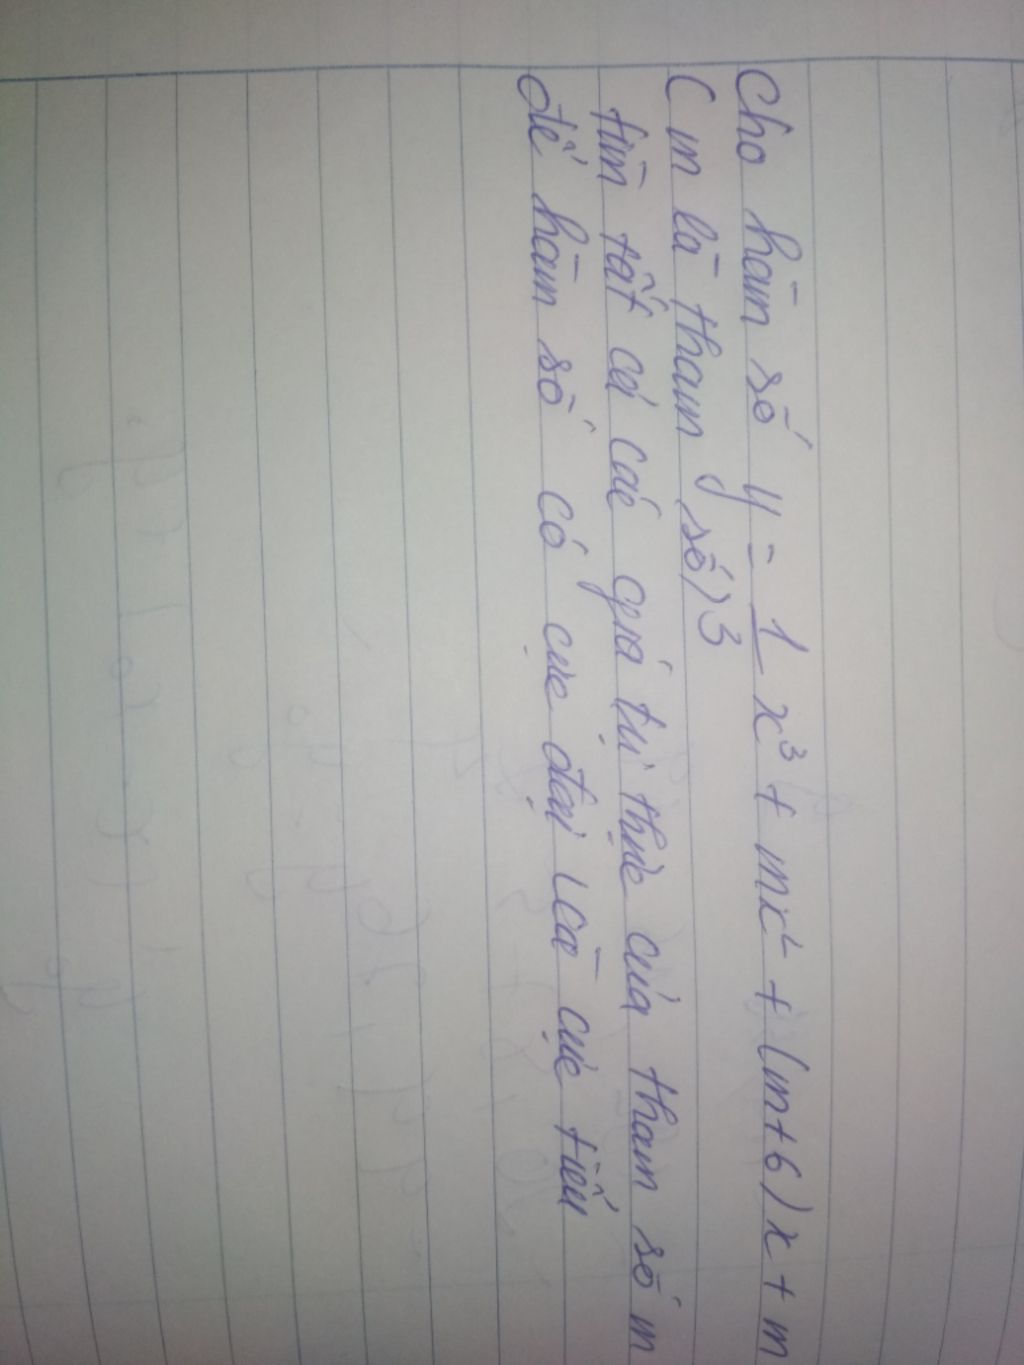 Cho hàm số y = 1/3 x³ + mx² + (m+6)x + m
( m là tham số)
tìm tất cả các giá trị thực của tham số m
để hàm số có cực đại và cực tiểu